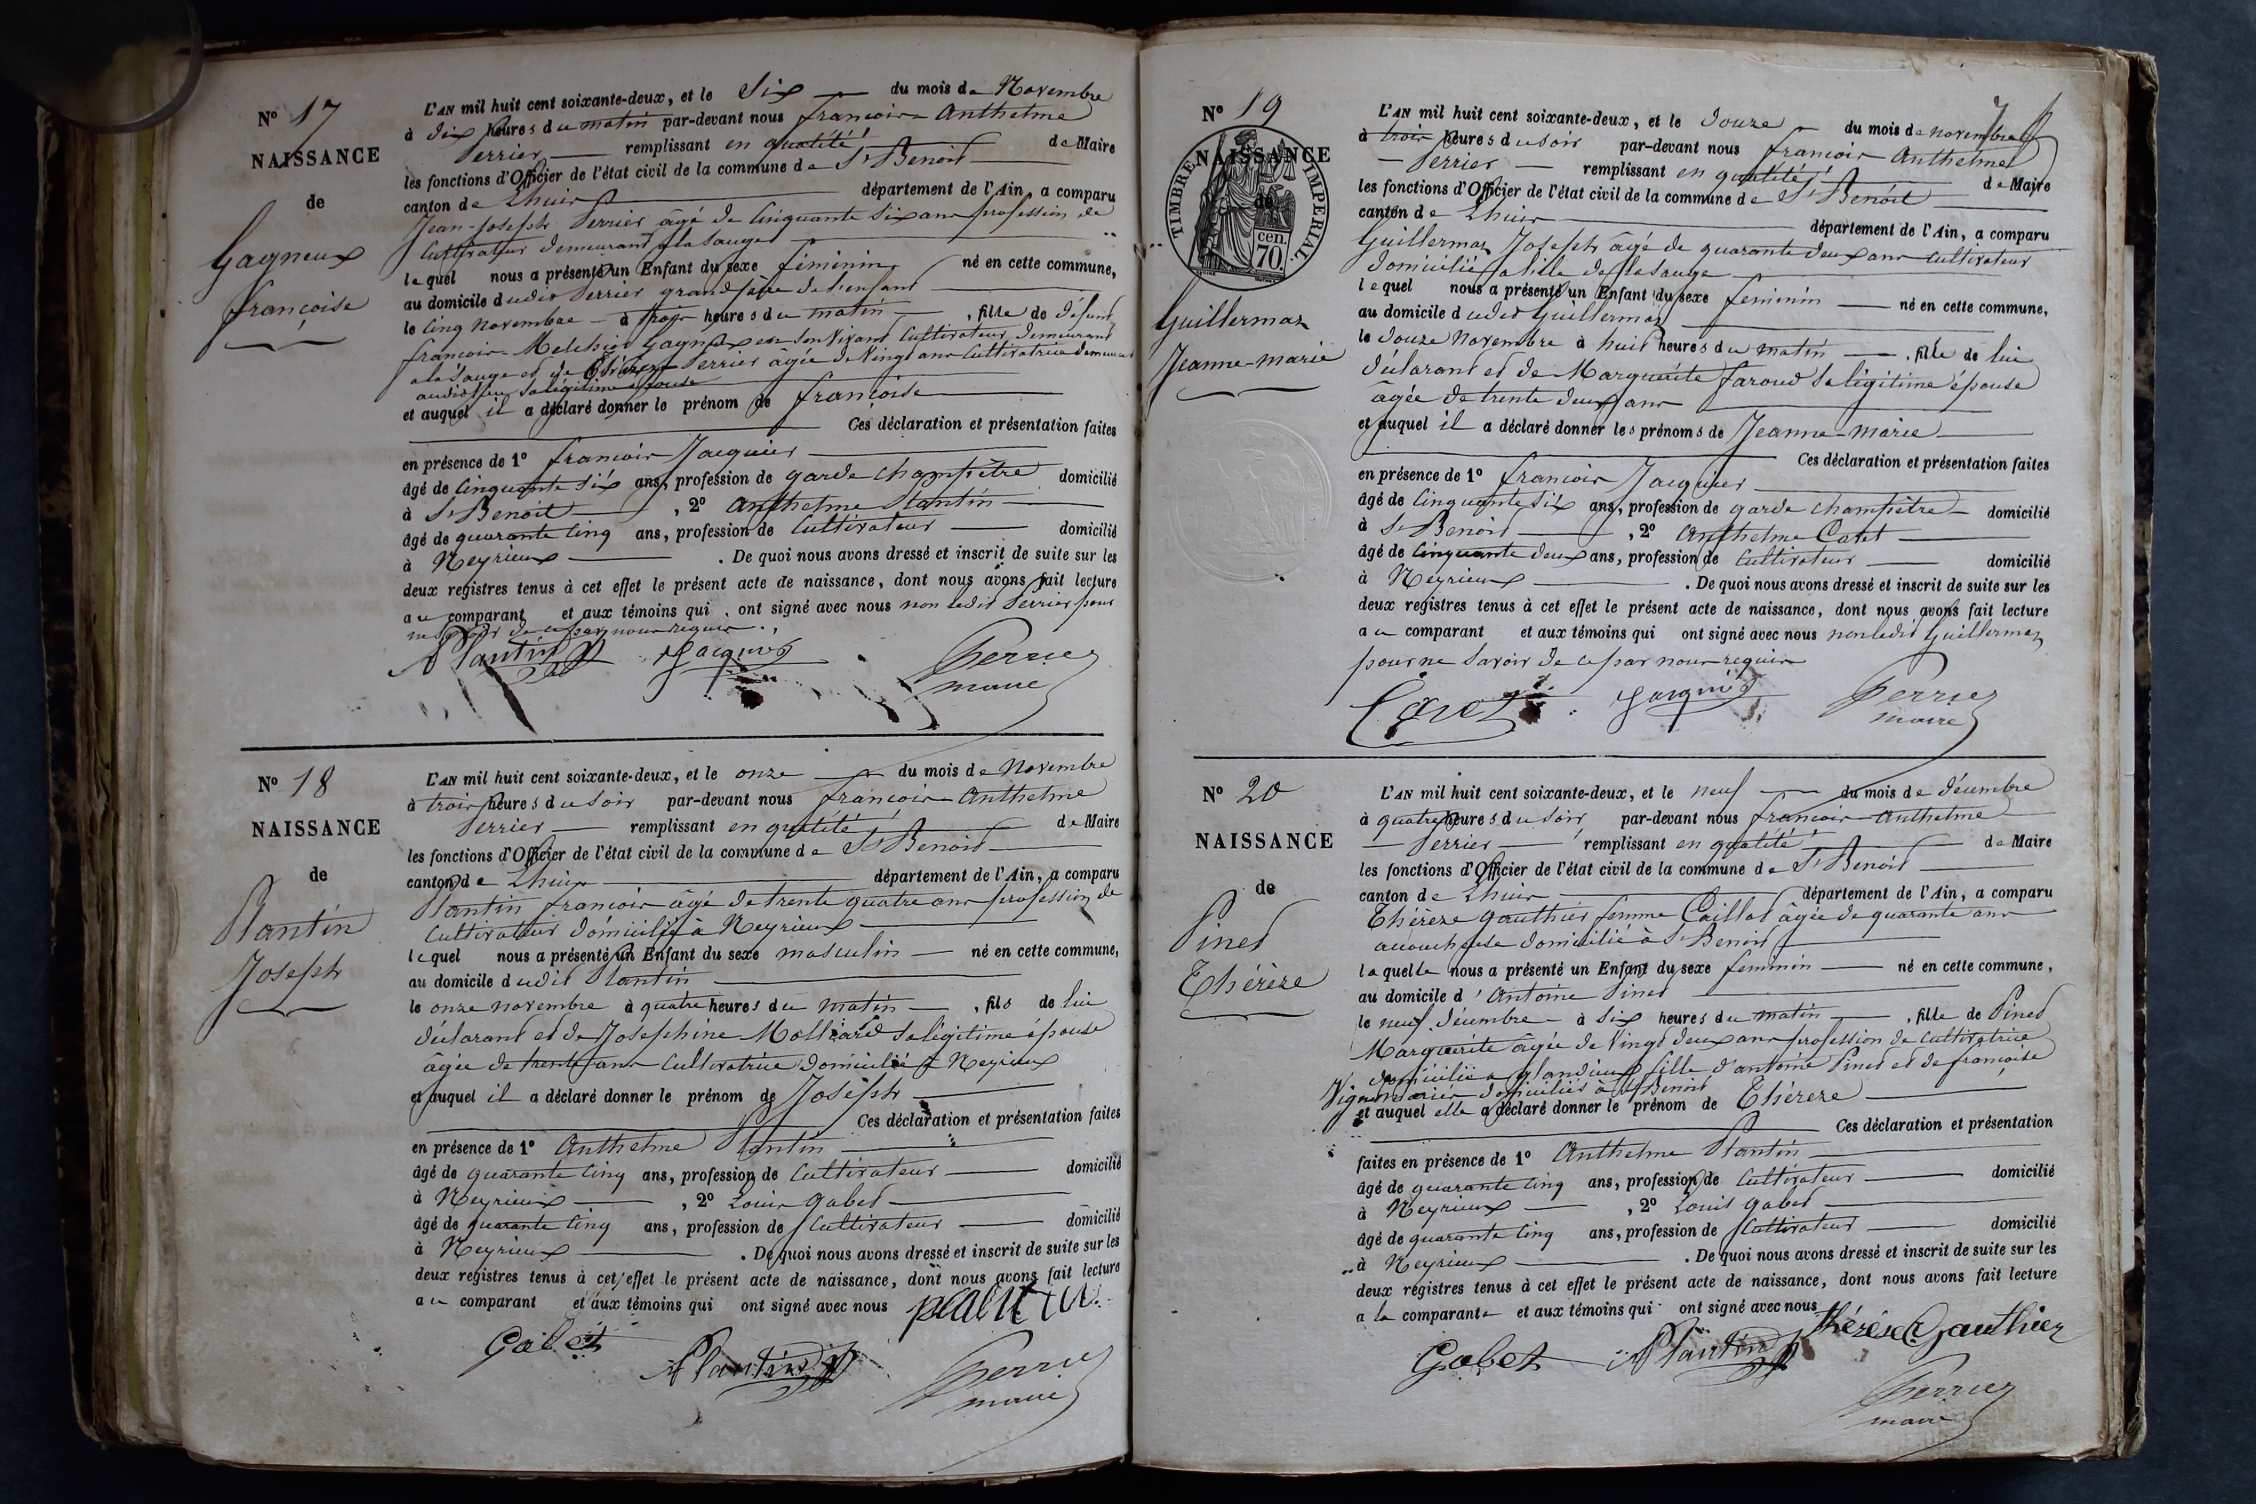 Nº 17
NAISSANCE
de
Gagneux
françoise
L'AN mil huit cent soixante-deux, et le Six du mois de Novembre
à dix heures du matin par-devant nous françois Anthelme
Perrier remplissant en qualité de Maire
les fonctions d'Officier de l'état civil de la commune de St Benoit
canton de Lhuis département de l'Ain, a comparu
Jean-Joseph Perrier âgé de Cinquante six ans profession de
Cultivateur demeurant à la Sauge
lequel nous a présenté un Enfant du sexe féminin né en cette commune,
au domicile dudit Perrier grand père de l'enfant
le Cinq novembre à trois heures du matin, fille de défunt
françois Melchior Gagneux en son vivant Cultivateur demeurant
à la Sauge et de Perrier âgée de Vingt ans Cultivatrice demeurant
audit lieu sa légitime épouse
et auquel il a déclaré donner le prénom de françoise
Ces déclaration et présentation faites
en présence de 1º françois Jacquier
âgé de Cinquante six ans, profession de garde champêtre domicilié
à St Benoit, 2º Anthelme Plantin
âgé de quarante Cinq ans, profession de Cultivateur domicilié
à Neyrieux. De quoi nous avons dressé et inscrit de suite sur les
deux registres tenus à cet effet le présent acte de naissance, dont nous avons fait lecture
au comparant et aux témoins qui ont signé avec nous non ledit Perrier pour
ne savoir de ce par nous requis.
Plantin Jacquier Perrier
maire
Nº 18
NAISSANCE
de
Plantin
Joseph
L'AN mil huit cent soixante-deux, et le onze du mois de Novembre
à trois heures du soir par-devant nous françois Anthelme
Perrier remplissant en qualité de Maire
les fonctions d'Officier de l'état civil de la commune de St Benoit
canton de Lhuis département de l'Ain, a comparu
Plantin françois âgé de trente quatre ans profession de
Cultivateur domicilié à Neyrieux
lequel nous a présenté un Enfant du sexe masculin né en cette commune,
au domicile dudit Plantin
le onze novembre à quatre heures du matin, fils de lui
déclarant et de Josephine Mollard sa légitime épouse
âgée de trente ans Cultivatrice domicilié à Neyrieux
et auquel il a déclaré donner le prénom de Joseph
Ces déclaration et présentation faites
en présence de 1º Anthelme Plantin
âgé de quarante Cinq ans, profession de Cultivateur domicilié
à Neyrieux, 2º Louis Gabet
âgé de quarante Cinq ans, profession de Cultivateur domicilié
à Neyrieux. De quoi nous avons dressé et inscrit de suite sur les
deux registres tenus à cet effet le présent acte de naissance, dont nous avons fait lecture
au comparant et aux témoins qui ont signé avec nous plantin
Gabet Plantin Perrier
maire
Nº 19
NAISSANCE
de
TIMBRE IMPERIAL
70 cen.
Guillermaz
Jeanne-marie
L'AN mil huit cent soixante-deux, et le douze du mois de novembre
à trois heures du soir par-devant nous françois Anthelme
Perrier remplissant en qualité de Maire
les fonctions d'Officier de l'état civil de la commune de St Benoit
canton de Lhuis département de l'Ain, a comparu
Guillermaz Joseph âgé de quarante deux ans Cultivateur
domicilié de la Sauge
lequel nous a présenté un Enfant du sexe féminin né en cette commune,
au domicile dudit Guillermaz
le douze novembre à huit heures du matin, fille de lui
déclarant et de Marguerite faroud sa légitime épouse
âgée de trente deux ans
et auquel il a déclaré donner les prénoms de Jeanne-marie
Ces déclaration et présentation faites
en présence de 1º françois Jacquier
âgé de Cinquante six ans, profession de garde champêtre domicilié
à St Benoit, 2º Anthelme Catet
âgé de Cinquante deux ans, profession de Cultivateur domicilié
à Neyrieux. De quoi nous avons dressé et inscrit de suite sur les
deux registres tenus à cet effet le présent acte de naissance, dont nous avons fait lecture
au comparant et aux témoins qui ont signé avec nous non ledit Guillermaz
pour ne savoir de ce par nous requis
Jacquier Perrier
maire
Nº 20
NAISSANCE
de
Pinet
Thérèze
L'AN mil huit cent soixante-deux, et le neuf du mois de décembre
à quatre heures du soir par-devant nous françois Anthelme
Perrier remplissant en qualité de Maire
les fonctions d'Officier de l'état civil de la commune de St Benoit
canton de Lhuis département de l'Ain, a comparu
Thérèze Gauthier femme Caillot âgée de quarante ans
accoucheuse domicilié à St Benoit
laquelle nous a présenté un Enfant du sexe féminin né en cette commune,
au domicile d'Antoine Pinet
le neuf décembre à six heures du matin, fille de Pinet
Marguerite âgée de Vingt deux ans profession de Cultivatrice
domicilié à glandieux fille d'antoine Pinet et de françoise
domiciliés à St Benoit
et auquel elle a déclaré donner le prénom de Thérèze
Ces déclaration et présentation
faites en présence de 1º Anthelme Plantin
âgé de quarante Cinq ans, profession de Cultivateur domicilié
à Neyrieux, 2º Louis Gabet
âgé de quarante Cinq ans, profession de Cultivateur domicilié
à Neyrieux. De quoi nous avons dressé et inscrit de suite sur les
deux registres tenus à cet effet le présent acte de naissance, dont nous avons fait lecture
a la comparante et aux témoins qui ont signé avec nous
thérèse Gauthier
Gabet Plantin
Perrier
maire